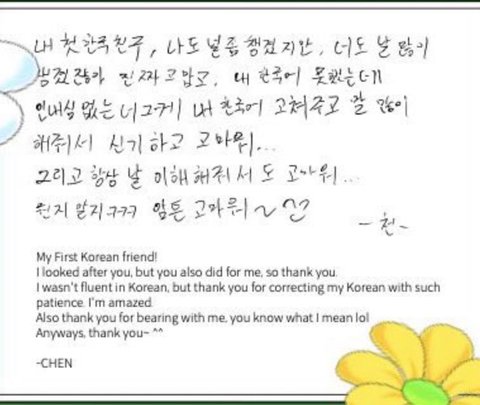 내 첫 한국친구, 나도 널 좀 챙겼지만, 너도 날 많이
챙겼잖아 진짜 고맙고. 내 한국어 못했는데
인내심 없는 너 그렇게 내 한국어 고쳐주고 말 많이
해줘서 신기하고 고마워...
그리고 항상 날 이해해줘서도 고마워...
뭔지 알지ㅋㅋㅋ 암튼 고마워~ ^^
- 첸 -
My First Korean friend!
I looked after you, but you also did for me, so thank you.
I wasn't fluent in Korean, but thank you for correcting my Korean with such
patience. I'm amazed.
Also thank you for bearing with me, you know what I mean lol
Anyways, thank you~ ^^
-CHEN